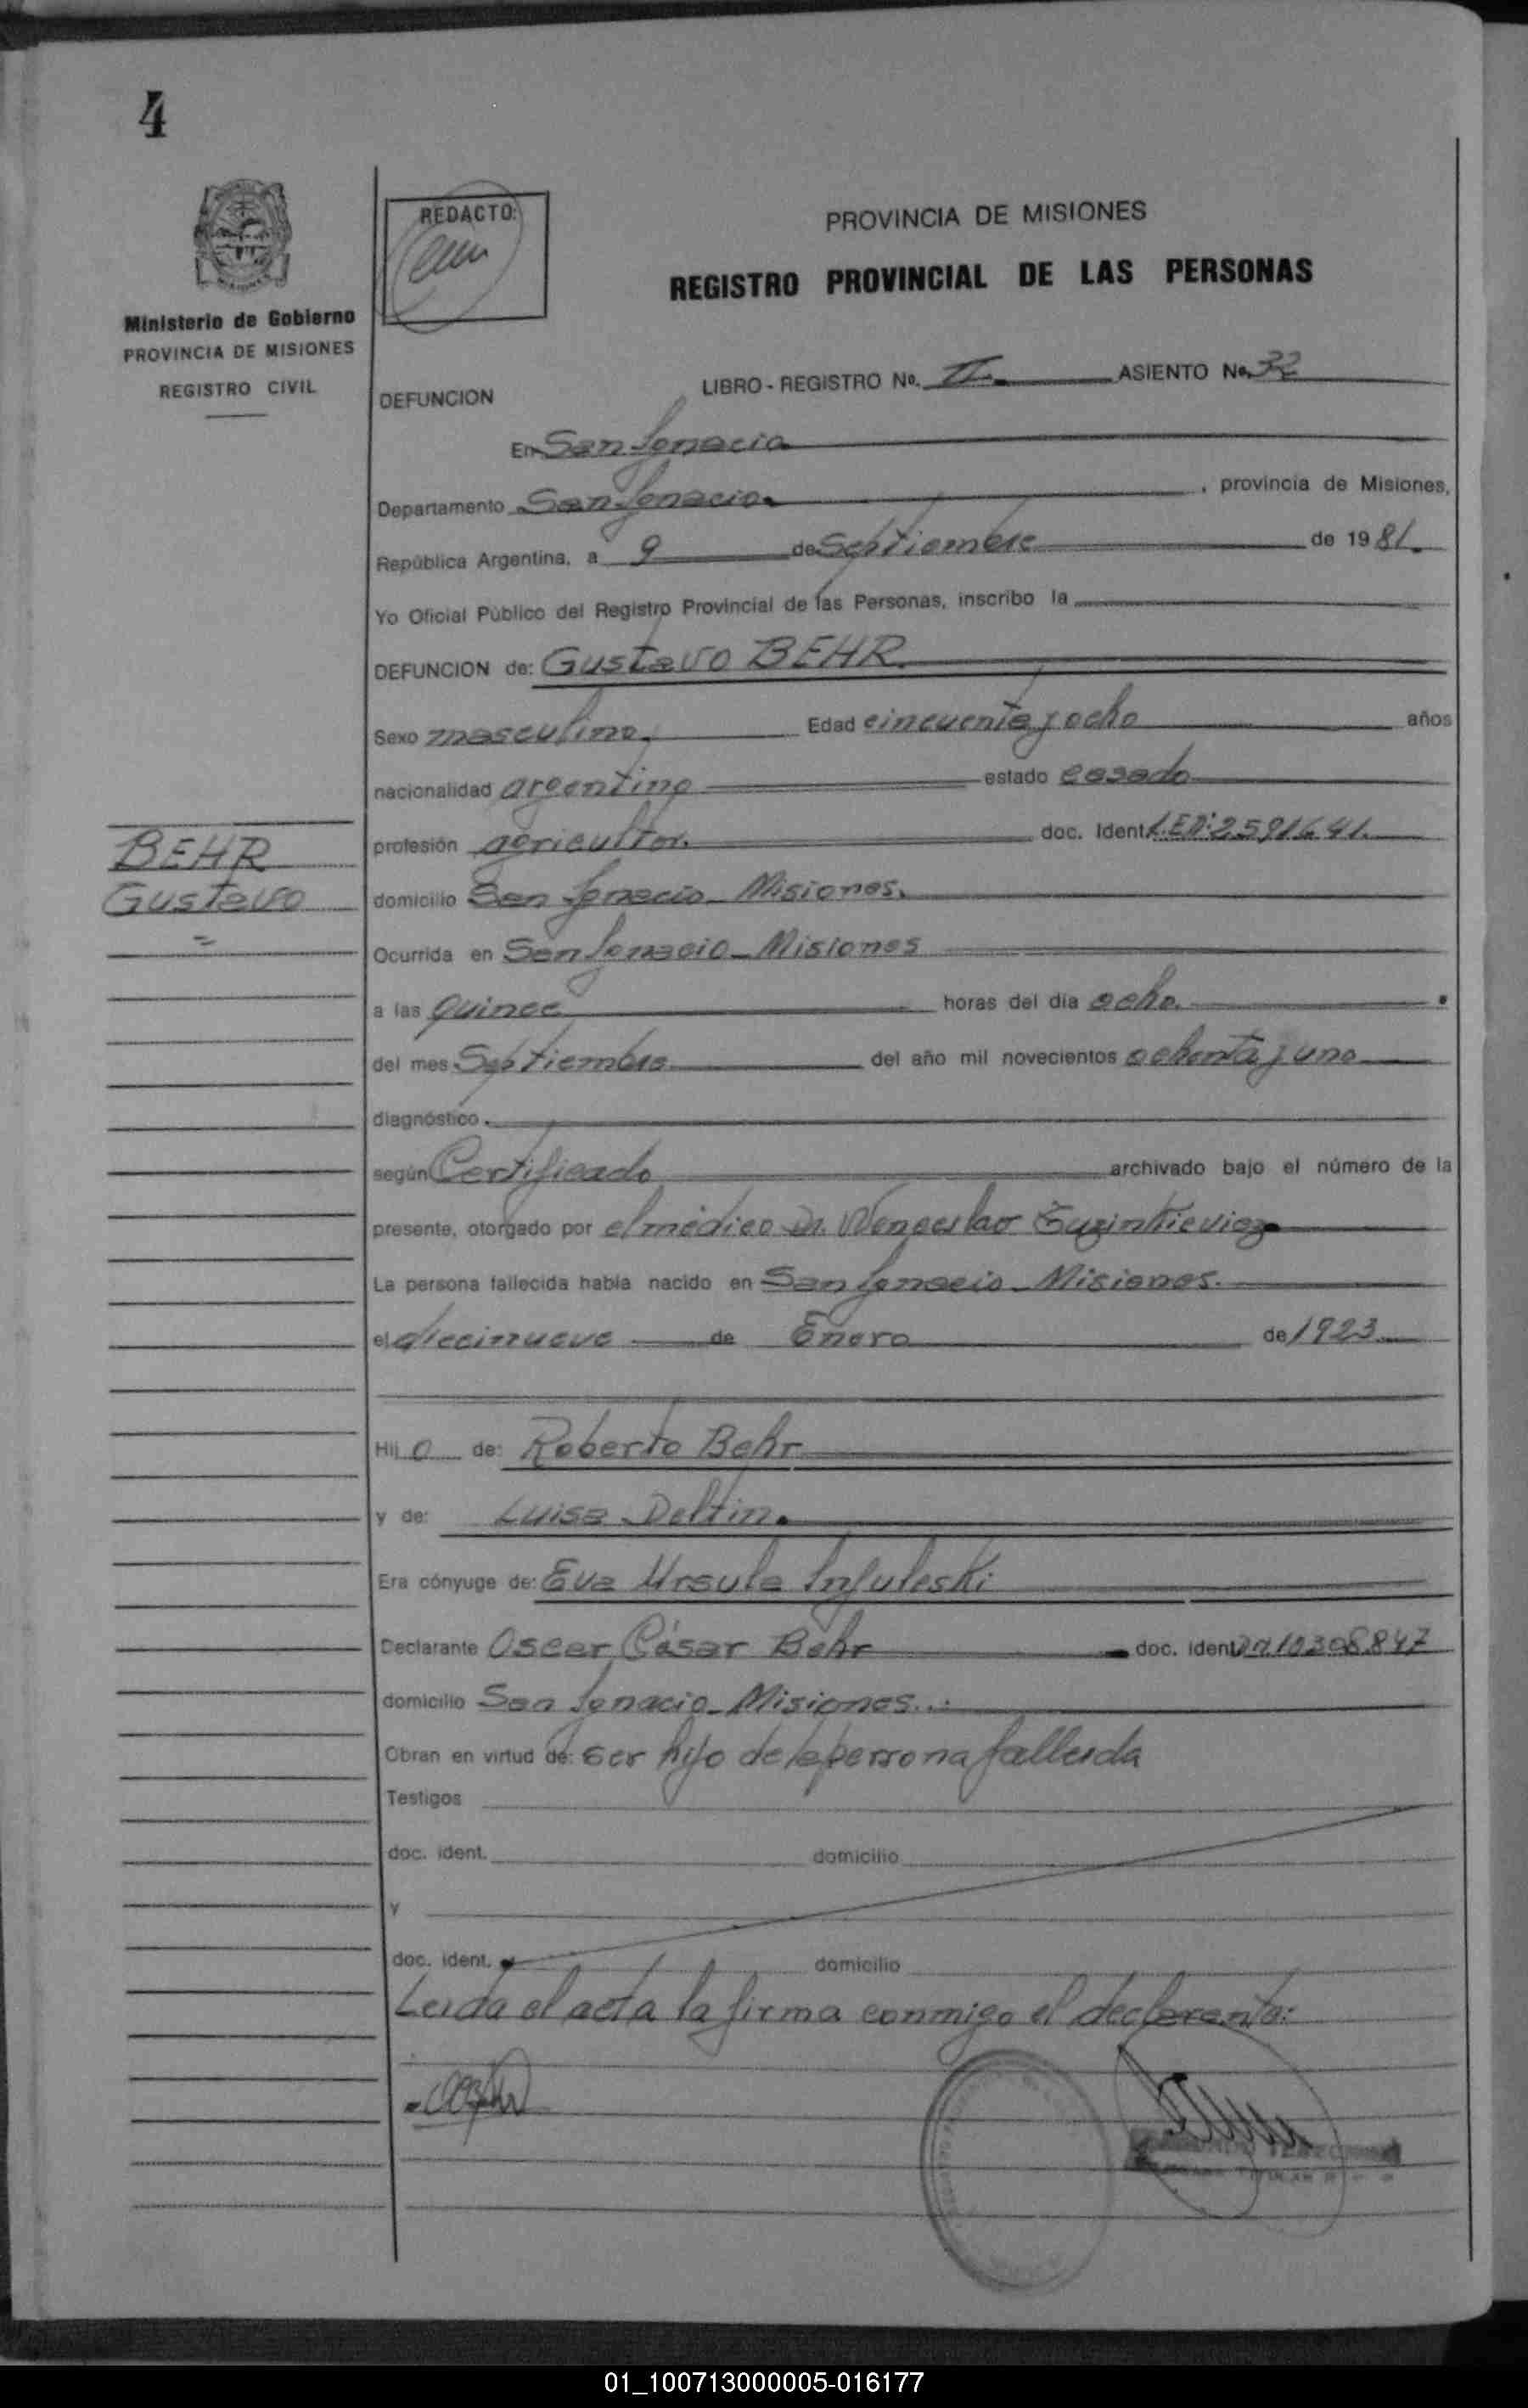 4
REDACTO:
PROVINCIA DE MISIONES
REGISTRO PROVINCIAL DE LAS PERSONAS
Ministerio de Gobierno
PROVINCIA DE MISIONES
REGISTRO CIVIL
LIBRO - REGISTRO No. II ASIENTO No. 32
DEFUNCION
En San Ignacio
Departamento San Ignacio , provincia de Misiones,
República Argentina, a 9 de Septiembre de 1981.
Yo Oficial Público del Registro Provincial de las Personas, inscribo la
DEFUNCION de: Gustavo BEHR
Sexo masculino, Edad cincuenta y ocho años
nacionalidad argentino estado casado
profesión agricultor. doc. Ident. L.E.Nº: 2591641.
BEHR
Gustavo
=
domicilio San Ignacio Misiones.
Ocurrida en San Ignacio - Misiones
a las quince horas del día ocho.
del mes Septiembre del año mil novecientos ochenta y uno
diagnóstico
según Certificado archivado bajo el número de la
presente, otorgado por el médico Dr. Wenceslao
La persona fallecida había nacido en San Ignacio - Misiones.
el diecinueve de Enero de 1923
Hijo de: Roberto Behr
y de: Luisa Deltin.
Era cónyuge de: Eva Ursula Infuleski
Declarante Oscar César Behr doc. ident. 10.308.847
domicilio San Ignacio - Misiones..:
Obran en virtud de: ser hijo de la persona fallecida
Testigos
doc. ident. domicilio
y
doc. ident. domicilio
Leida el acta la firma conmigo el declarante:
01_100713000005-016177